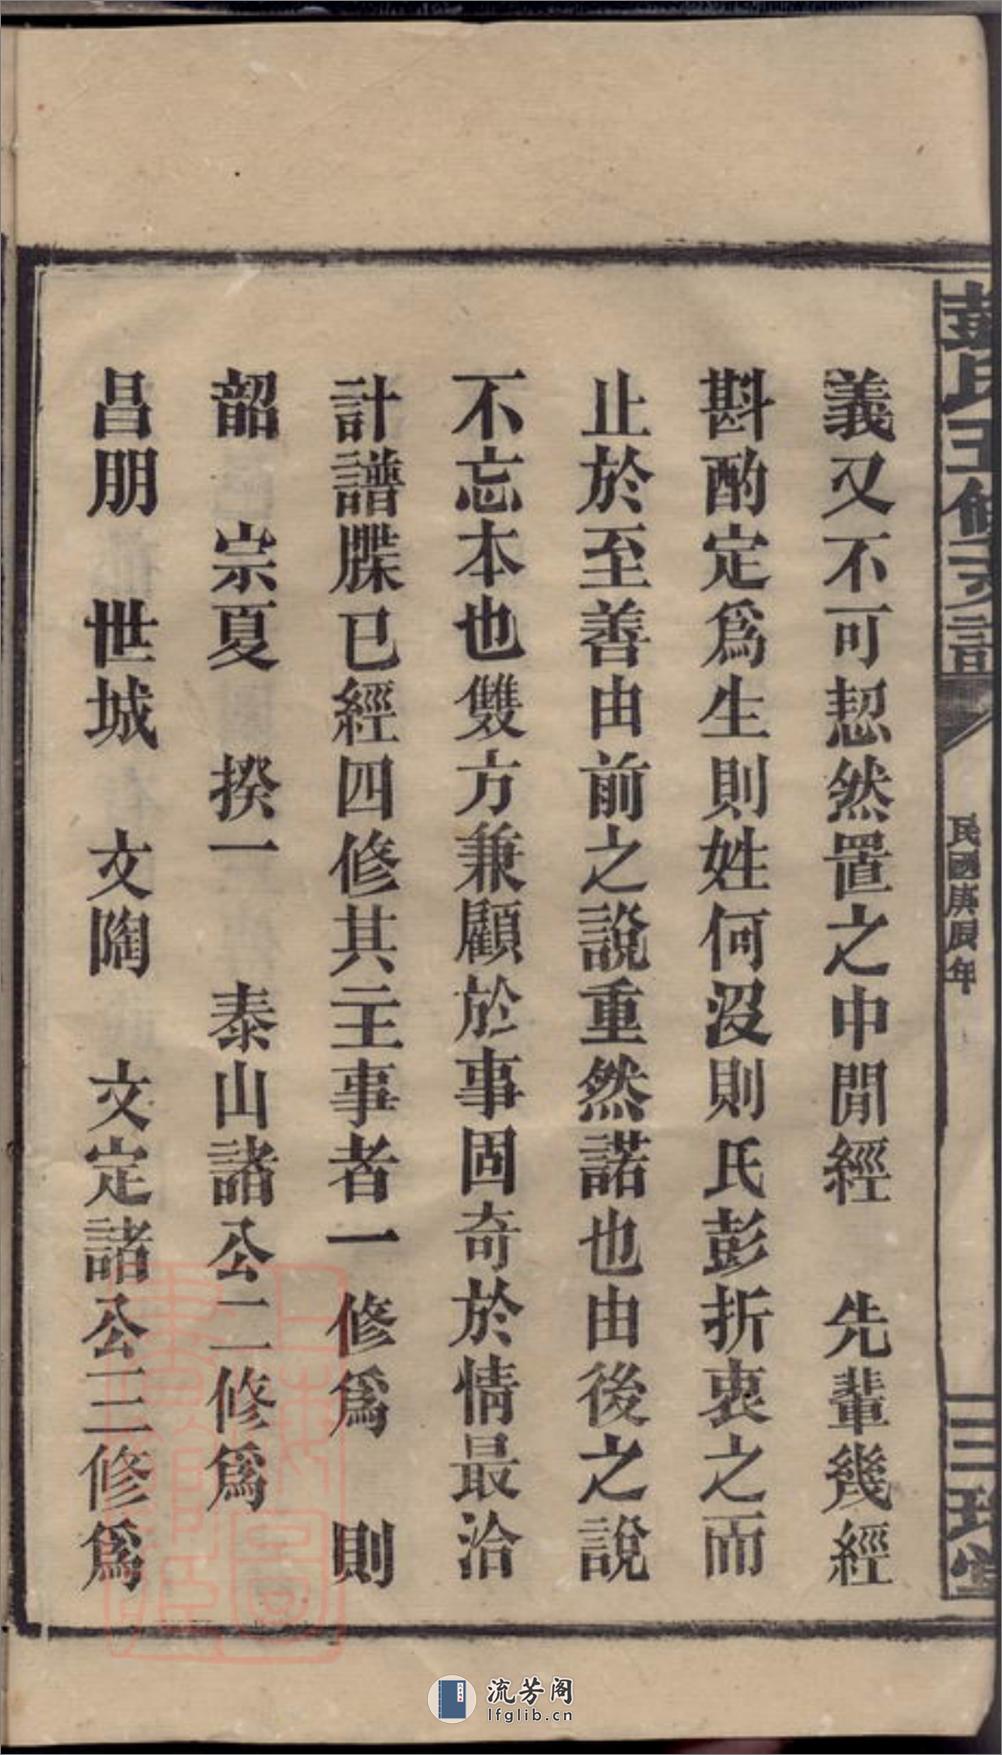 彭氏五修支譜
民國庚辰年
義又不可恝然置之中閒經　先輩幾經
斟酌定爲生則姓何沒則氏彭折衷之而
止於至善由前之說重然諾也由後之說
不忘本也雙方兼顧於事固奇於情最洽
計譜牒已經四修其主事者一修爲　則
韶　宗夏　揆一　泰山諸公二修爲
昌朋　世城　文陶　文定諸公三修爲
流芳阁
lfglib.cn